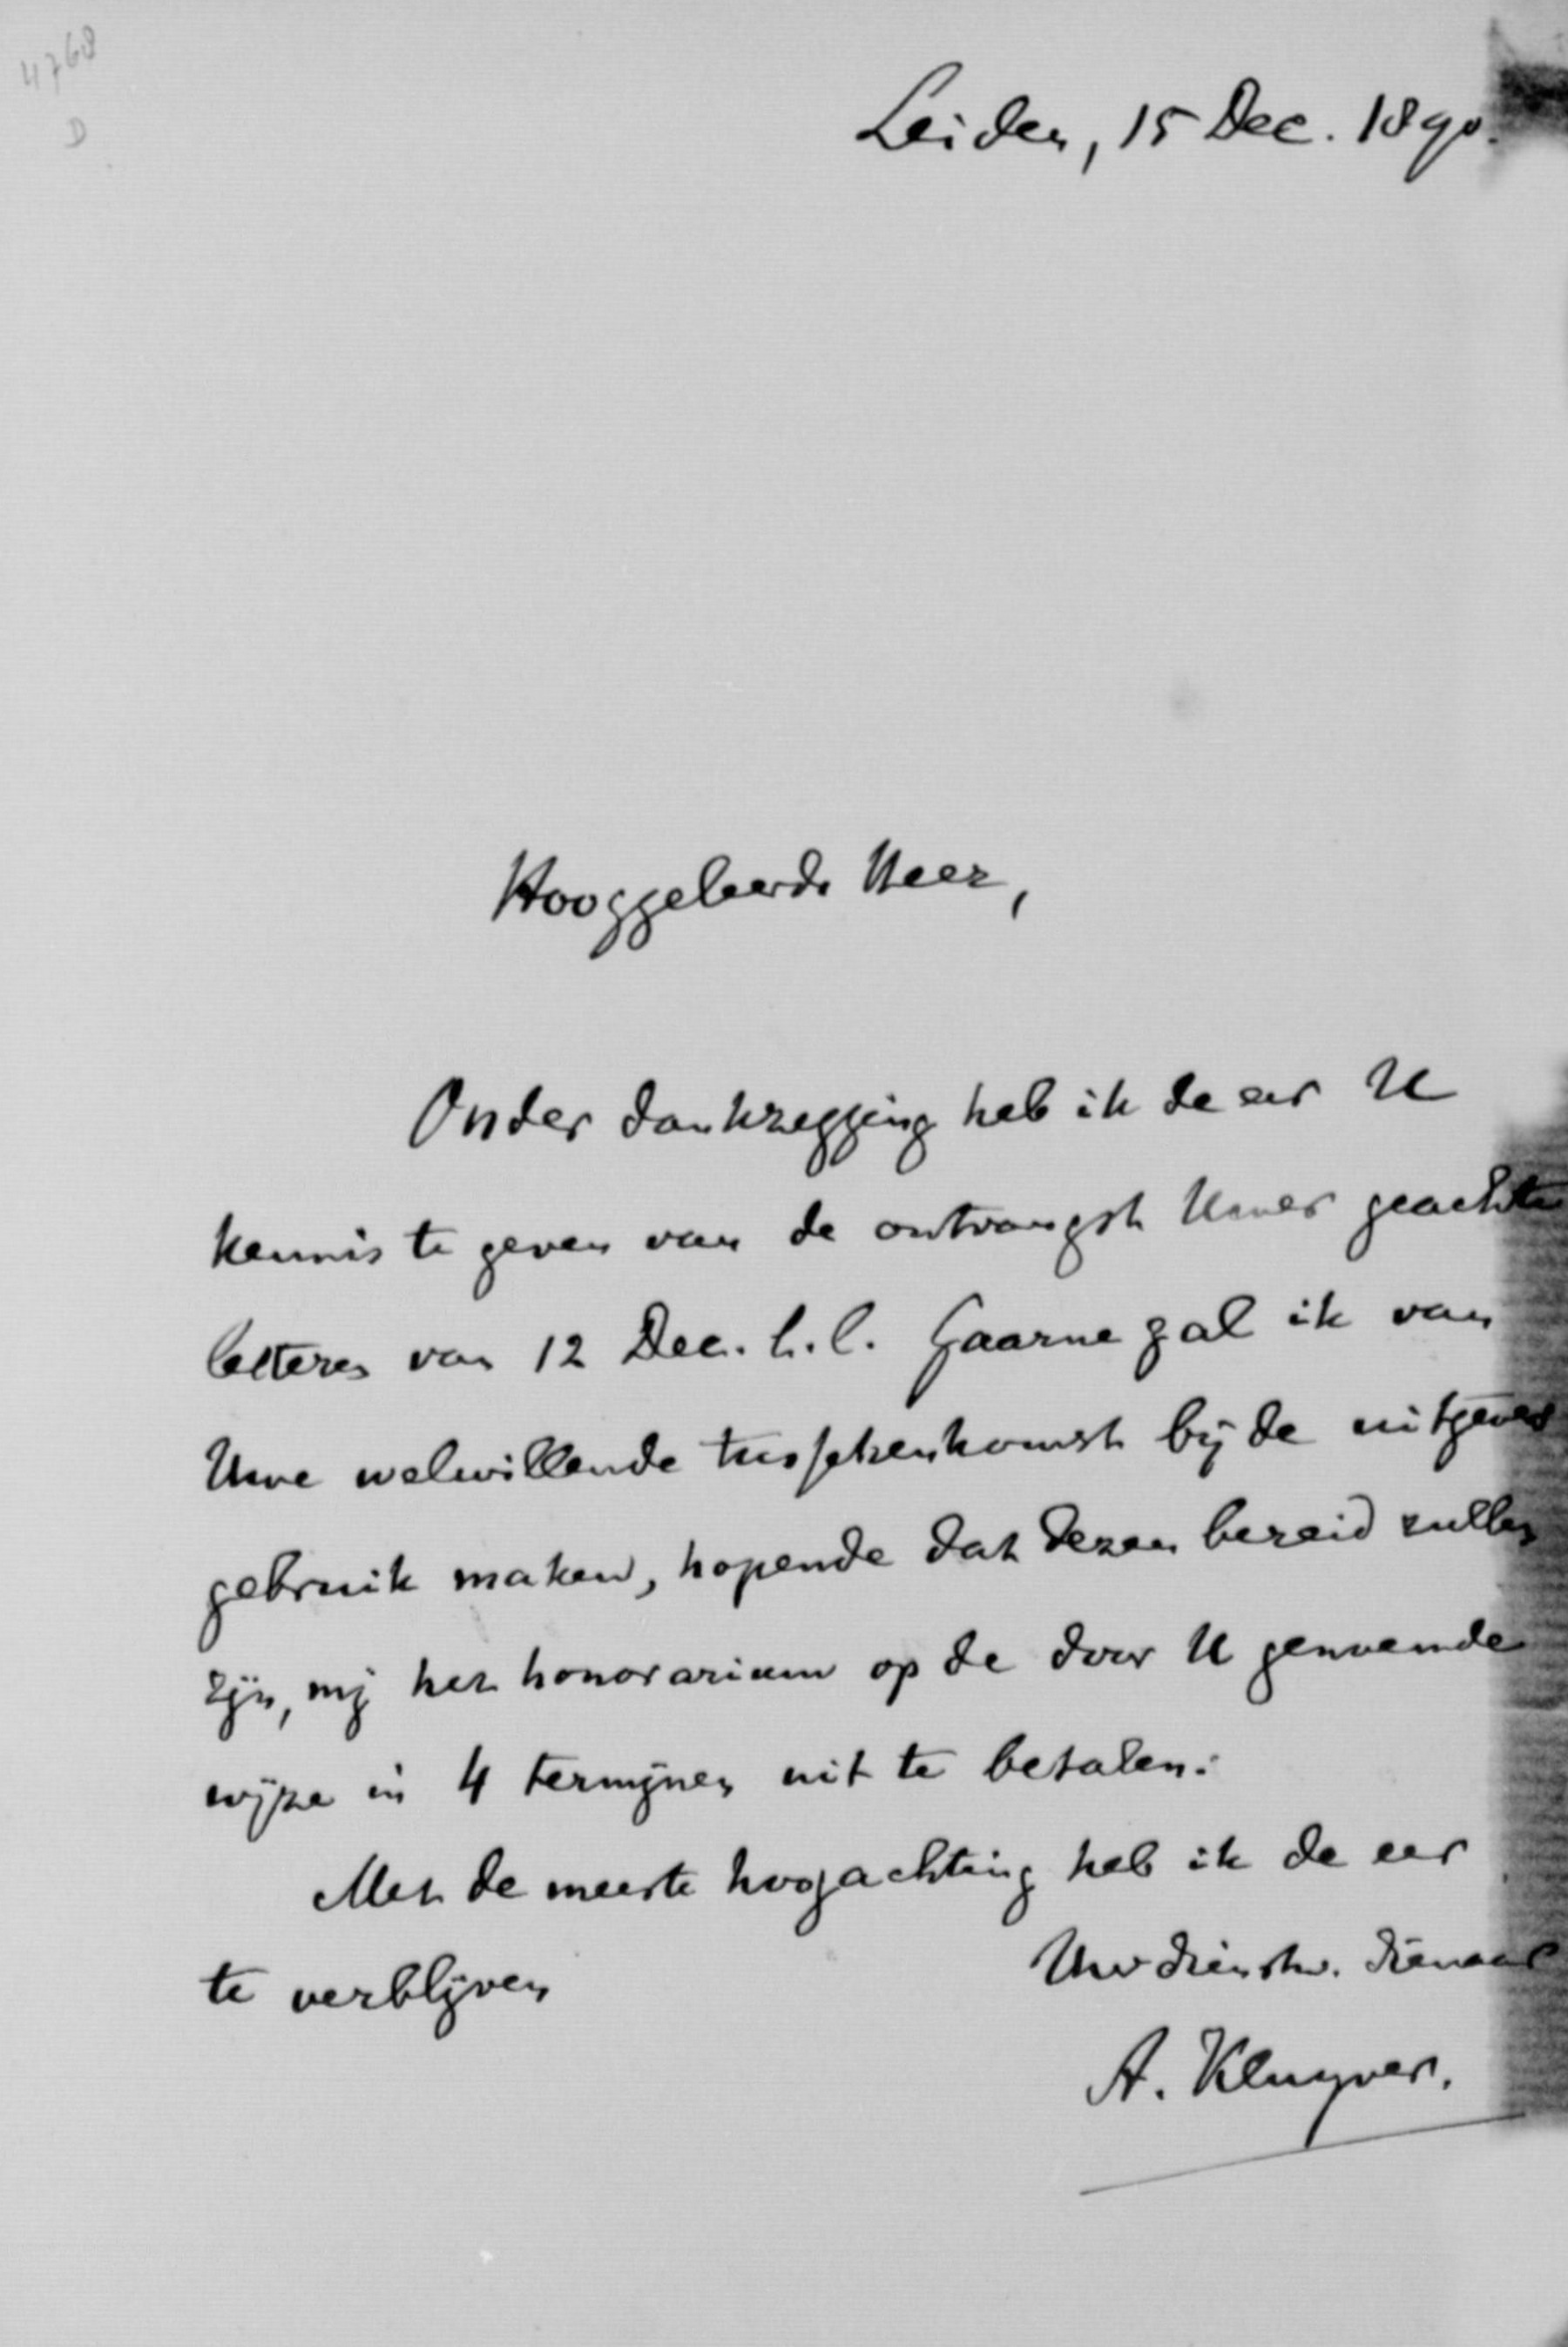 4768
D
Leiden, 15 Dec. 1890.
Hooggeleerde Heer,
Onder dankzegging heb ik de eer U
kennis te geven van de ontvangst Uwer geachte
letteren van 12 Dec. l.l. Gaarne zal ik van
Uwe welwillende tusschenkomst bij de uitgevers
gebruik maken, hopende dat dezen bereid zullen
zijn, mij het honorarium op de door U genoemde
wijze in 4 termijnen uit te betalen.
Met de meeste hoogachting heb ik de eer
te verblijven
Uw dienstw. dienaar
A. Kluyver.